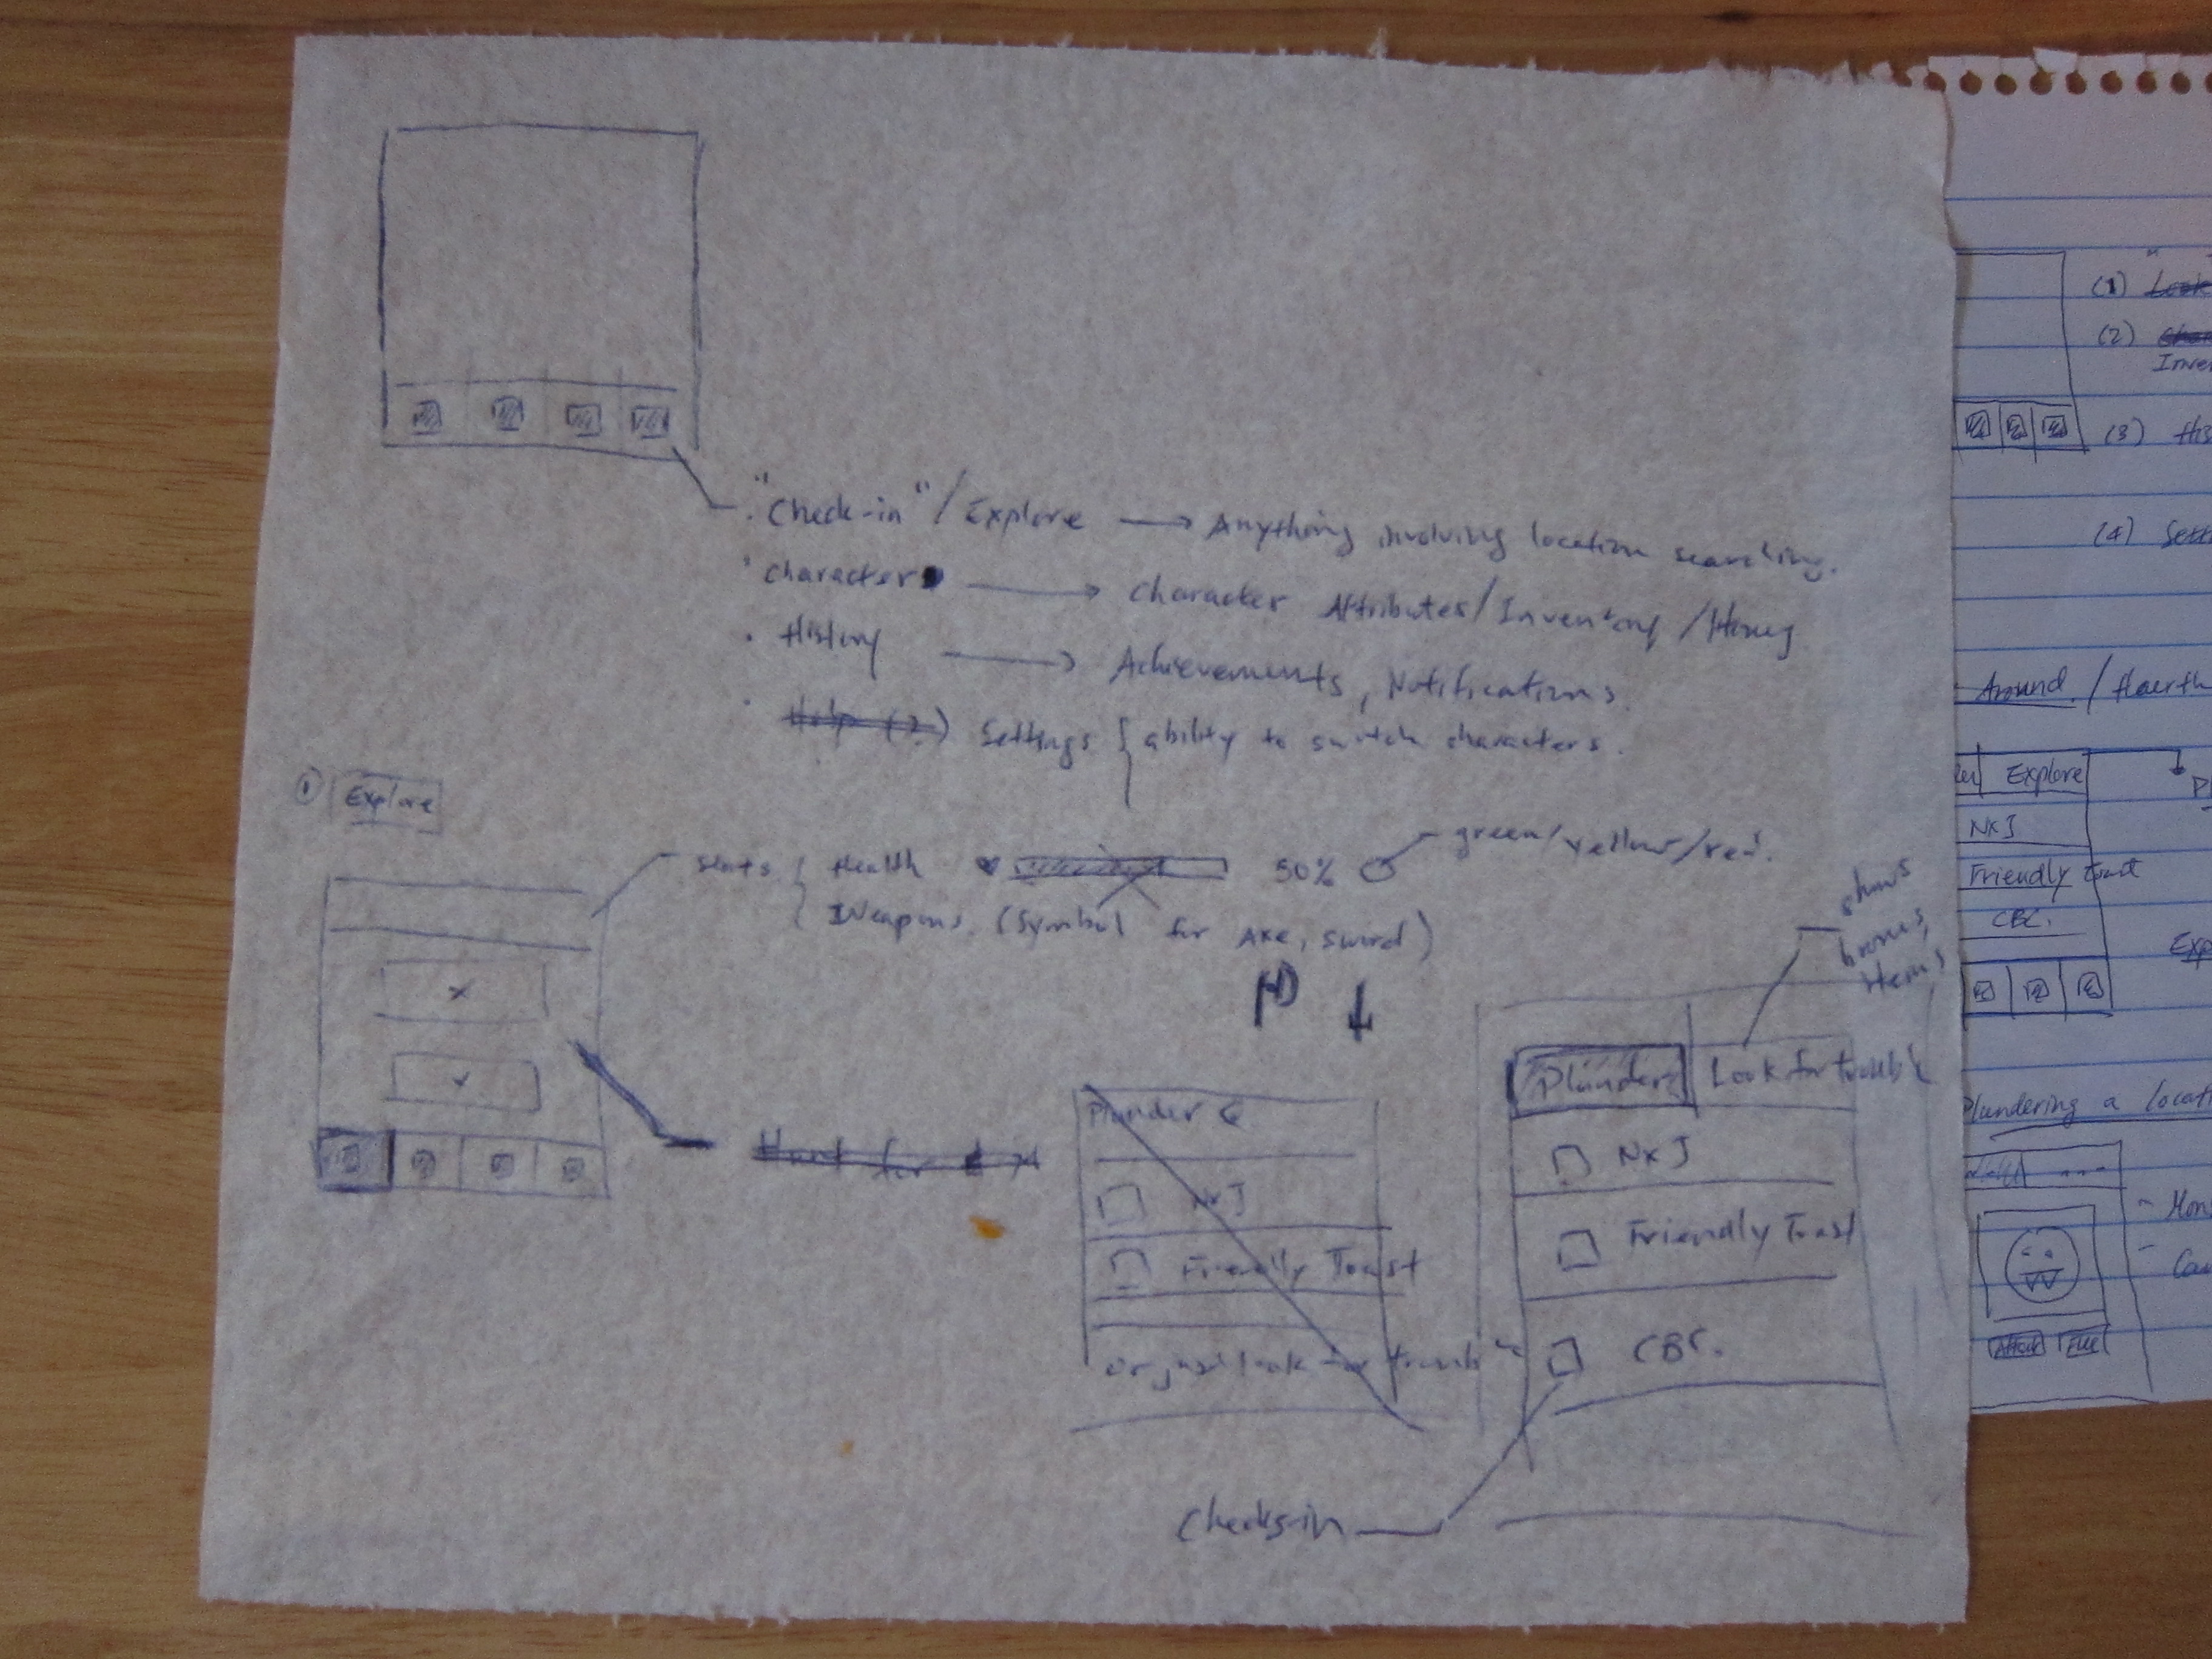 "Check-in" / Explore → Anything involving location searching.
· character → character Attributes / Inventory / Money
· History → Achievements, Notifications.
· Help (?) Settings { ability to switch characters.
① Explore
stats { Health ♥ 50% green/yellow/red.
Weapons. (Symbol for Axe, sword)
shows
items
x
✓
Hunt for
Plunder
NxJ
Friendly Toast
or just look for trouble
Plunder
Look for trouble
NxJ
Friendly Toast
CBC.
Checks-in
(1) Look
(2)
Inve
(3) His
(4) Sett
Around. / Hearth
Explore
NxJ
Friendly Toast
CBC.
Pl
Exp
Plundering a locati
- Mons
Attack